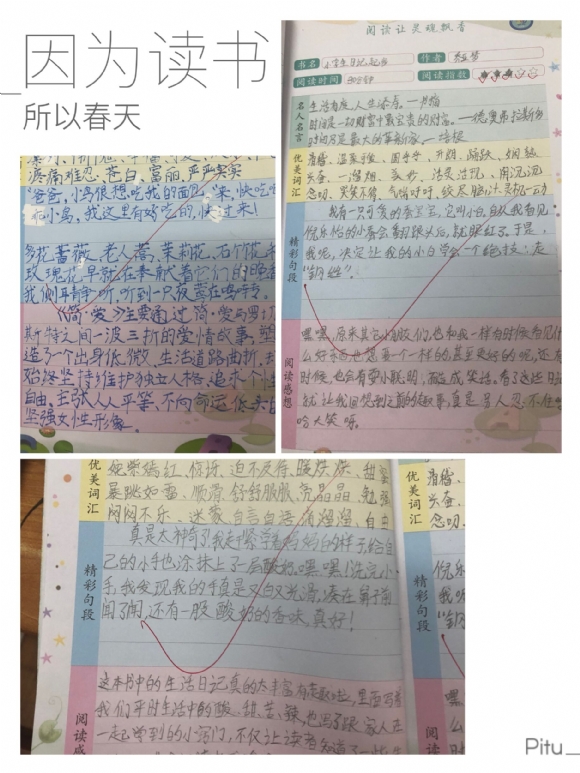 因为读书
所以春天
疼痛难忍、苍白、富丽、严严实实
"爸爸,小鸟很想吃我的面包
小鸟,我这里有好吃的,快过来!
多花蔷薇、老人蒿、茉莉花、石竹花和
玫瑰花早就在奉献着它们的晚香
我侧耳静听,听到一只夜莺在鸣啭。
《简·爱》主要通过简·爱与罗切
斯特之间一波三折的爱情故事,塑
造了一个出身低微、生活道路曲折,却
始终坚持维护独立人格、追求个性
自由、主张人人平等、不向命运低头的
坚强女性形象。
阅读让灵魂飘香
书名 小学生日记起步 作者
阅读时间 阅读指数
名人名言
生活有度,人生添寿。—书摘
时间是一切财富中最宝贵的财富。—德奥弗拉斯多
时间乃是最大的革新家。—培根
优美词汇
滑稽、温柔
念叨、哭笑不得、气喘吁吁、绞尽脑汁、灵机一动
精彩句段
我有一只可爱的
我呢,决定让我的小白学会一个绝技:走
"钢丝"。
阅读感想
嘿嘿,原来其它小朋友们,也和我一样有时候看见什
么好东西也想要一个一样的甚至更好的呢,还有
时候,也会有耍小聪明,而造成笑话。看了这些日记
就让我回想到之前的趣事,真是另人忍不住想
哈大笑呀。
优美词汇
姹紫嫣红、惊讶、迫不及待、暖烘烘、甜蜜
暴跳如雷、顺滑、舒舒服服、亮晶晶、勉强
闷闷不乐、迷蒙、自言自语、滑溜溜、自由
精彩句段
真是太神奇了!我赶紧学着妈妈的样子给自
己的小手也涂抹上了一层酸奶。嘿嘿!洗完小
手,我发现我的手真是又白又光滑,凑在鼻子前
闻了闻,还有一股酸奶的香味,真好!
阅读感
这本书中的生活日记真的太丰富有趣啦,里面写着
我们平时生活中的酸、甜、苦、辣,也写了跟家人在
一起学到的小窍门,不仅让读者知道了一些生
优美词汇
滑稽、
念叨、
精彩句段
"钢
阅读
嘿
么
时
Pitu